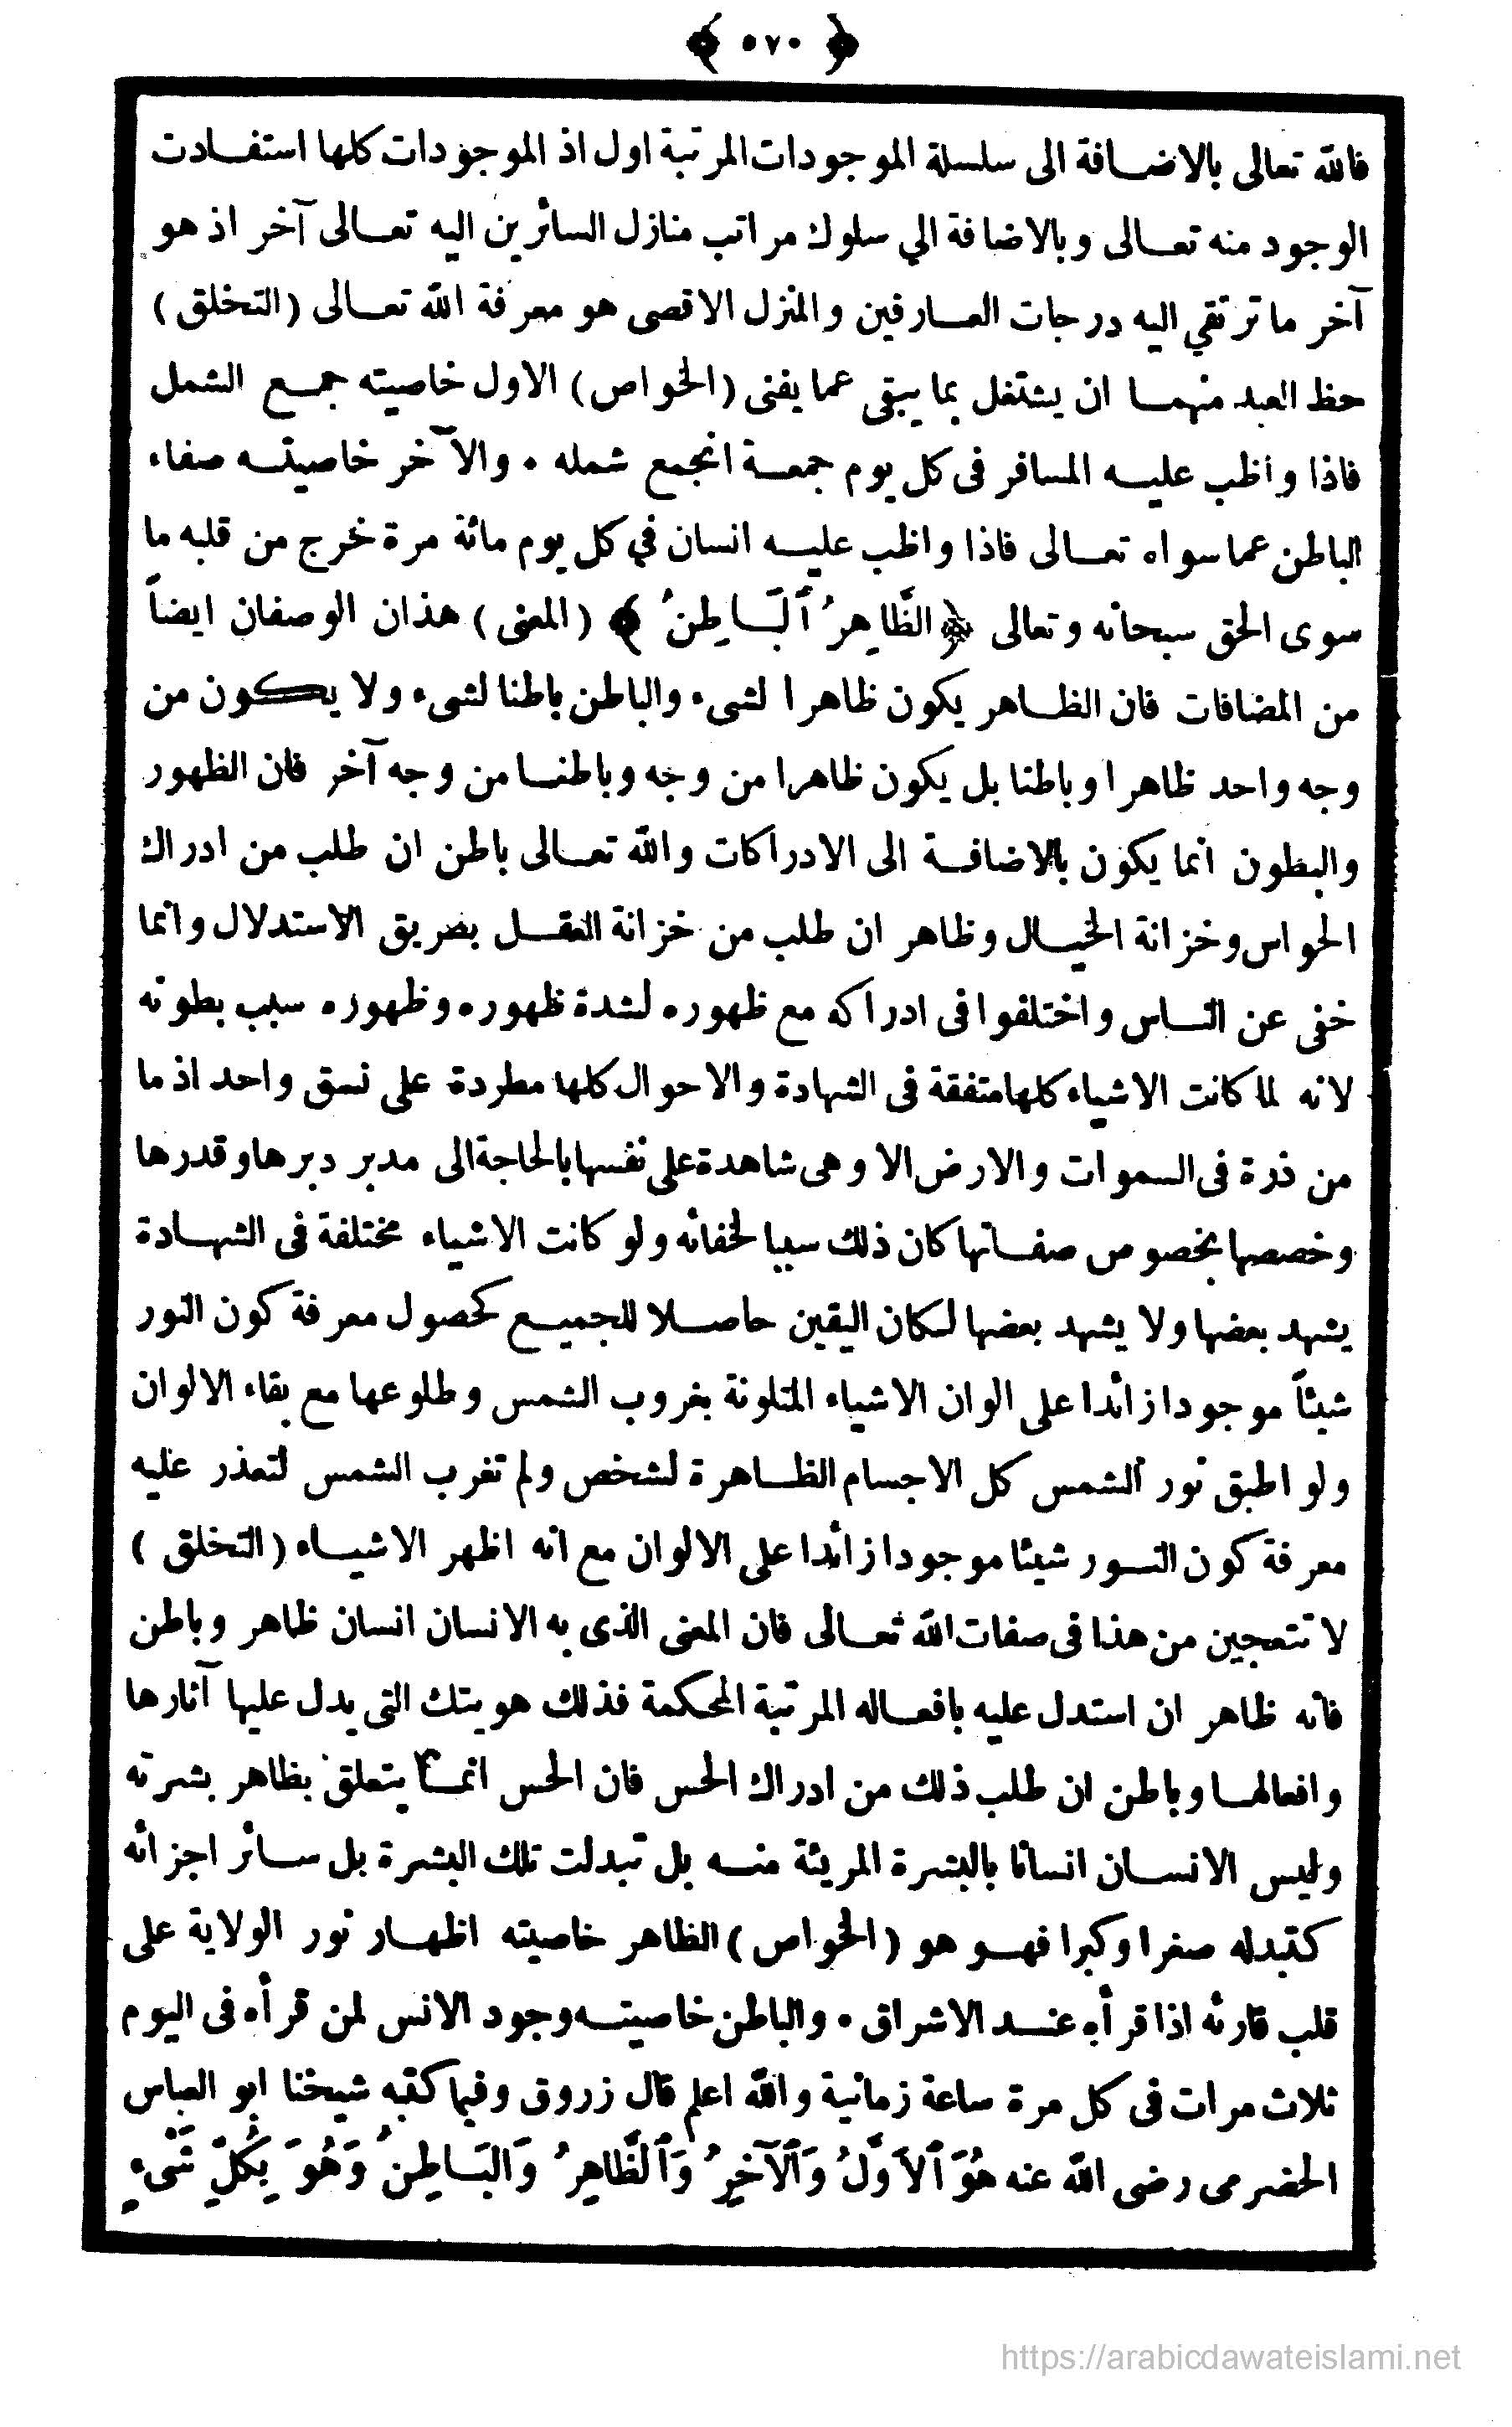 ﴿ ٥٧٠ ﴾
فالله تعالى بالاضافة الى سلسلة الموجودات المرتبة اول اذ الموجودات كلها استفادت
الوجود منه تعالى وبالاضافة الي سلوك مراتب منازل السائرين اليه تعالى آخر اذ هو
آخر ما ترتقي اليه درجات العارفين والمنزل الاقصى هو معرفة الله تعالى (التخلق)
حظ العبد منهما ان يشتغل بما يبقى عما يفنى (الخواص) الاول خاصيته جمع الشمل
فاذا واظب عليه المسافر فى كل يوم جمعة انجمع شمله . والآخر خاصيته صفاء
الباطن عما سواه تعالى فاذا واظب عليه انسان في كل يوم مائة مرة خرج من قلبه ما
سوى الحق سبحانه وتعالى ﴿ الظَّاهِرُ ٱلْبَاطِنُ ﴾ (المعنى) هذان الوصفان ايضاً
من المضافات فان الظاهر يكون ظاهرا لشىء والباطن باطنا لشىء ولا يكون من
وجه واحد ظاهرا وباطنا بل يكون ظاهرا من وجه وباطنا من وجه آخر فان الظهور
والبطون انما يكون بالاضافة الى الادراكات والله تعالى باطن ان طلب من ادراك
الحواس وخزانة الخيال وظاهر ان طلب من خزانة العقل بطريق الاستدلال وانما
خفى عن الناس واختلفوا فى ادراكه مع ظهوره لشدة ظهوره وظهوره سبب بطونه
لانه لما كانت الاشياء كلها متفقة فى الشهادة والاحوال كلها مطردة على نسق واحد اذ ما
من ذرة فى السموات والارض الا وهى شاهدة على نفسها بالحاجة الى مدبر دبرها وقدرها
وخصصها بخصوص صفاتها كان ذلك سببا لخفائه ولو كانت الاشياء مختلفة فى الشهادة
يشهد بعضها ولا يشهد بعضها لكان اليقين حاصلا للجميع كحصول معرفة كون النور
شيئاً موجودا زائدا على الوان الاشياء المتلونة بغروب الشمس وطلوعها مع بقاء الالوان
ولو اطبق نور الشمس كل الاجسام الظاهرة لشخص ولم تغرب الشمس لتعذر عليه
معرفة كون النور شيئا موجودا زائدا على الالوان مع انه اظهر الاشياء (التخلق)
لا تتعجبن من هذا فى صفات الله تعالى فان المعنى الذى به الانسان انسان ظاهر وباطن
فانه ظاهر ان استدل عليه بافعاله المرتبة المحكمة فذلك هويتك التى يدل عليها آثارها
وافعالها وباطن ان طلب ذلك من ادراك الحس فان الحس انما يتعلق بظاهر بشرته
وليس الانسان انسانا بالبشرة المريئة منه بل تبدلت تلك البشرة بل سائر اجزائه
كتبدله صغرا وكبرا فهو هو (الخواص) الظاهر خاصيته اظهار نور الولاية على
قلب قارئه اذا قرأه عند الاشراق . والباطن خاصيته وجود الانس لمن قرأه فى اليوم
ثلاث مرات فى كل مرة ساعة زمانية والله اعلم قال زروق وفيما كتبه شيخنا ابو العباس
الحضرمى رضى الله عنه هُوَ ٱلْاَوَّلُ وَٱلْآخِرُ وَٱلظَّاهِرُ وَالْبَاطِنُ وَهُوَ بِكُلِّ شَىْءٍ
https://arabicdawateislami.net